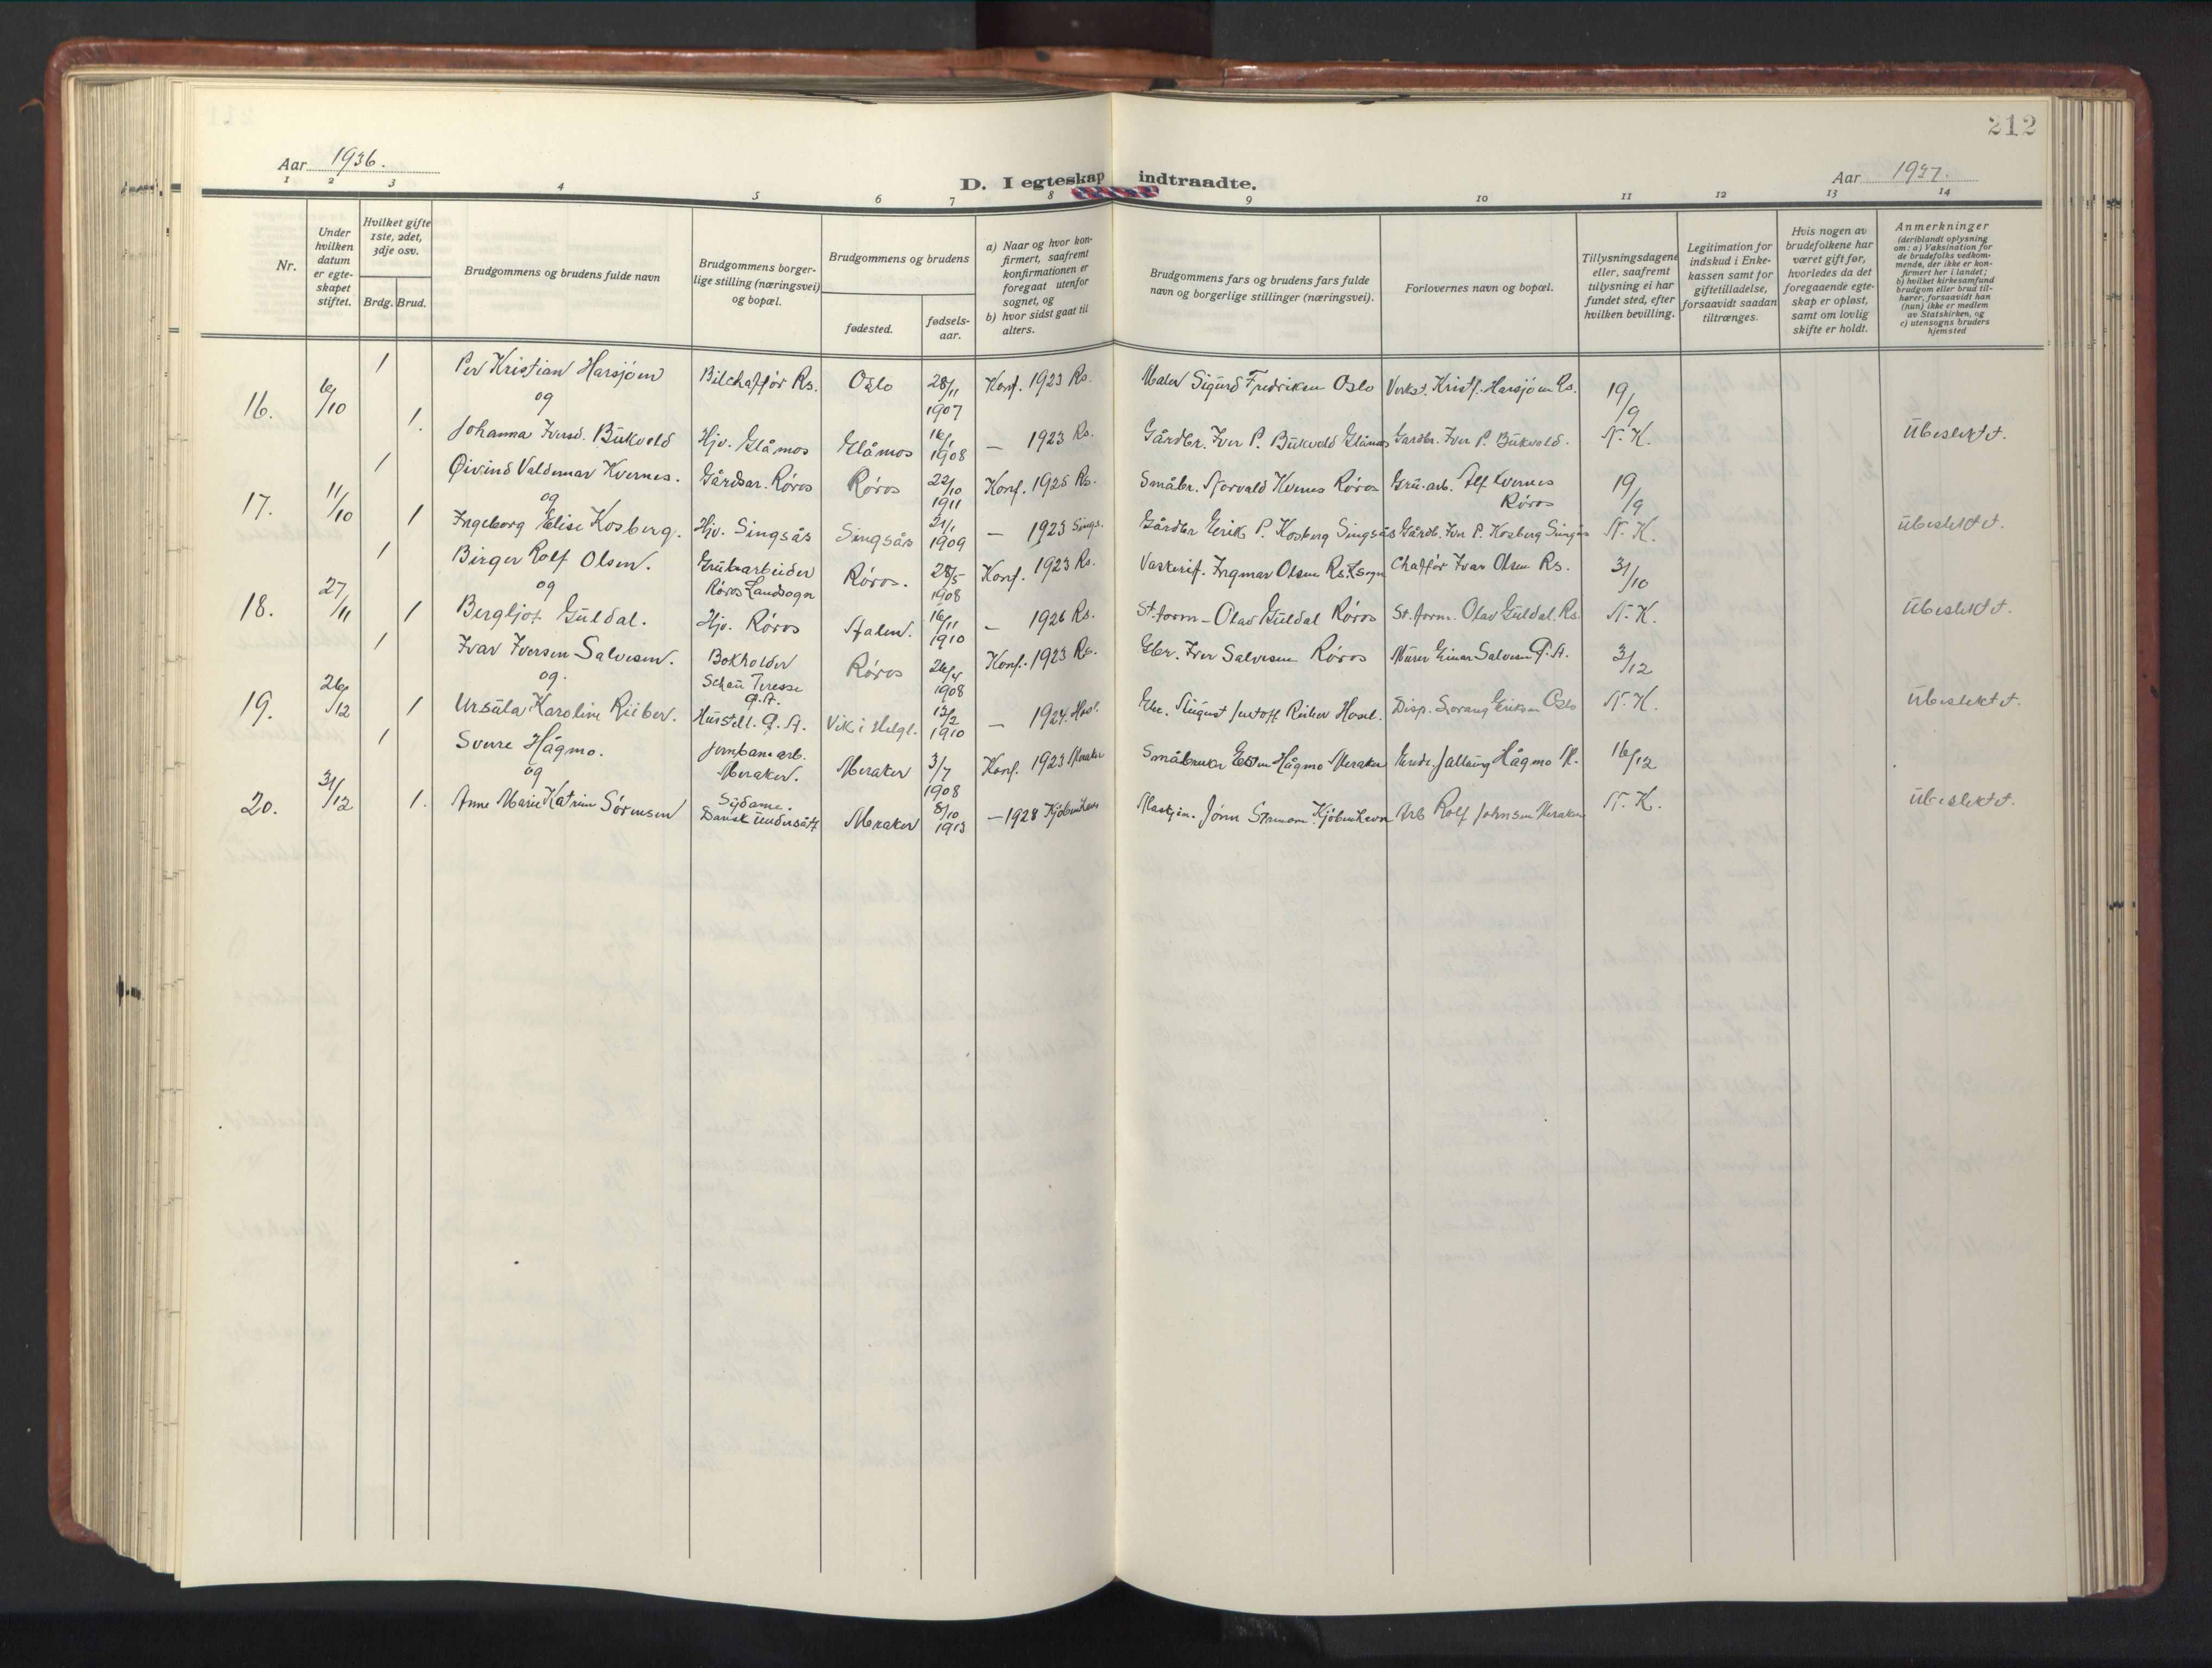 212
Aar 1936.
D. I egteskap indtraadte.
Aar 1937.
1 2 3 4 5 6 7 8 9 10 11 12 13 14
Nr.
Under hvilken datum er egteskapet stiftet.
Hvilket gifte 1ste, 2det, 3dje osv.
Brdg. Brud.
Brudgommens og brudens fulde navn
Brudgommens borgerlige stilling (næringsvei) og bopæl.
Brudgommens og brudens
fødested.
fødselsaar.
a) Naar og hvor konfirmert, saafremt konfirmationen er foregaat utenfor sognet, og
b) hvor sidst gaat til alters.
Brudgommens fars og brudens fars fulde navn og borgerlige stillinger (næringsvei).
Forlovernes navn og bopæl.
Tillysningsdagene eller, saafremt tillysning ei har fundet sted, efter hvilken bevilling.
Legitimation for indskud i Enkekassen samt for giftetilladelse, forsaavidt saadan tiltrænges.
Hvis nogen av brudefolkene har været gift før, hvorledes da det foregaaende egteskap er opløst, samt om lovlig skifte er holdt.
Anmerkninger (deriblandt oplysning om: a) Vaksination for de brudefolks vedkommende, der ikke er konfirmert her i landet; b) hvilket kirkesamfund brudgom eller brud tilhører, forsaavidt han (hun) ikke er medlem av Statskirken, og c) utensogns bruders hjemsted
16. 6/10 1 Per Kristian Harsjøen Bilchaffør Rs. Oslo 28/11 1907 Konf. 1923 Rs. Maler Sigurd Fredriksen Oslo Verkst. Kristf. Harsjøen Rs. 19/9
og
1. Johanna Iversd. Bukvold Hjv. Glåmos Glåmos 16/1 1908 — 1923 Rs. Gårdbr. Iver P. Bukvold Glåmos Gardbr. Iver P. Bukvold. N. K. Ubeslektet.
17. 11/10 1 Øivind Valdemar Kvernes. Gårdsar. Røros Røros 22/10 1911 Konf. 1925 Rs. Småbr. Torvald Kvernes Røros Gru.arb. Alf Kvernes Røros 19/9
og
1 Ingeborg Elise Kosberg. Hjv. Singsås Singsås 21/1 1909 — 1923 Sings. Gårdbr Erik P. Kosberg Singsås Gårdb. Iver P. Kosberg Singsås N. K. Ubeslektet.
18. 27/11 1 Birger Rolf Olsen. Grubarbeider Røros Landsogn Røros. 28/5 1908 Konf. 1923 Rs. Ingmar Olsen Rs. Lsogn Chaffør Ivar Olsen Rs. 31/10
og
1 Bergljot Guldal. Hjv. Røros Atalen. 16/11 1910 — 1926 Rs. St. form — Olav Guldal Røros St. form. Olav Guldal. Rs. N. K. Ubeslektet.
19. 26/12 1 Ivar Iversen Salvesen. Bokholder Røros 26/4 1908 Konf. 1923 Rs. Gbr. Iver Salvesen Røros Murer Einar Salvesen 3/12
og.
1 Ursula Karoline Riiber. Vik i Helgl. 13/2 1910 — 1924. August Riiber Disp. Eriksen Oslo N. K. Ubeslektet.
20. 31/12 1 Sverre Hågmo. Jernbanearb. Meraker. Meraker 3/7 1908 Konf. 1923 Meraker Småbruker Hågmo Meraker Hågmo M. 16/12
og
1. Anne Marie Katrine Sørensen Sydame. Dansk undersått Meraker 8/10 1913 — 1928 Kjøbenhavn Maskjen. Jønn Kjøbenhavn Arb Rolf Johnsen Meraker N. K. Ubeslektet.